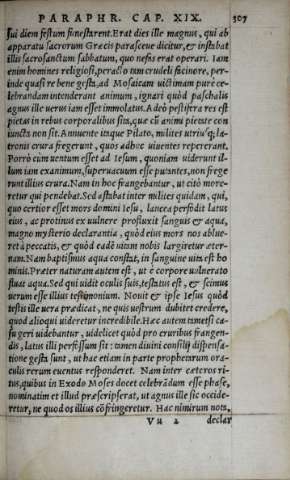 PARAPHR. CAP. XIX. 307
sui diem festum funestarent. Erat dies ille magnus, qui ab
apparatu sacrorum Græcis parasceue dicitur, & instabat
illis sacrosanctum sabbatum, quo nefas erat operari. Iam
enim homines religiosi, peracto tam crudeli facinore, per-
inde quasi re bene gesta, ad Mosaicam uictimam pure ce-
lebrandam intenderant animum, ignari quòd paschalis
agnus ille uerus iam esset immolatus. Adeò pestifera res est
pietas in rebus corporalibus sita, quæ cū animi pietate con
iuncta non sit. Annuente itaque Pilato, milites utriusq; la-
tronis crura fregerunt, quos adhuc uiuentes repererant.
Porrò cùm uentum esset ad Iesum, quoniam uiderunt il-
lum iam exanimum, superuacuum esse putantes, non frege
runt illius crura. Nam in hoc frangebantur, ut citò more-
retur qui pendebat. Sed astabat inter milites quidam, qui,
quo certior esset mors domini Iesu, lancea perfodit latus
eius, ac protinus ex uulnere profluxit sanguis & aqua,
magno mysterio declarantia, quòd eius mors nos ablue-
ret à peccatis, & quòd eadē uitam nobis largiretur æter-
nam. Nam baptismus aqua constat, in sanguine uita est ho
minis. Præter naturam autem est, ut è corpore uulnerato
fluat aqua. Sed qui uidit oculis suis, testatus est, & scimus
uerum esse illius testimonium. Nouit & ipse Iesus quòd
testis ille uera prædicat, ne quis uestrum dubitet credere,
quod alioqui uideretur incredibile. Hæc autem tametsi ca-
su geri uidebantur, uidelicet quòd pro cruribus frangen-
dis, latus illi perfossum sit: tamen diuini consilij dispensa-
tione gesta sunt, ut hac etiam in parte prophetarum ora-
culis rerum euentus responderet. Nam inter cæteros ri-
tus, quibus in Exodo Moses docet celebrādum esse phase,
nominatim et illud præscripserat, ut agnus ille sic occide-
retur, ne quod os illius cōfringeretur. Hac nimirum nota,
Vu 2 declar